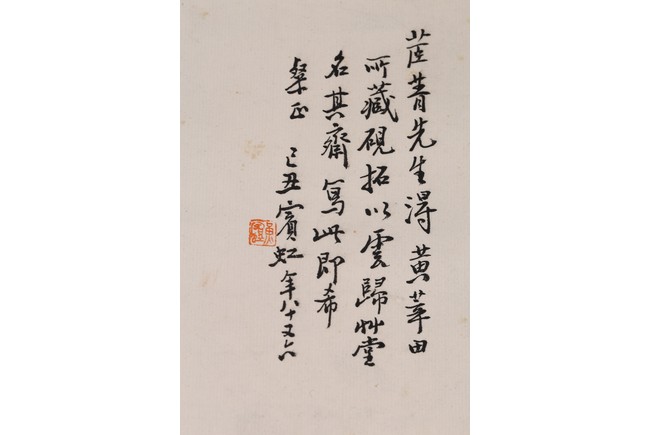 茝菁先生淂黄莘田
所藏硯拓以雲歸艸堂
名其齋寫此即希
粲正 己丑賓虹年八十又六